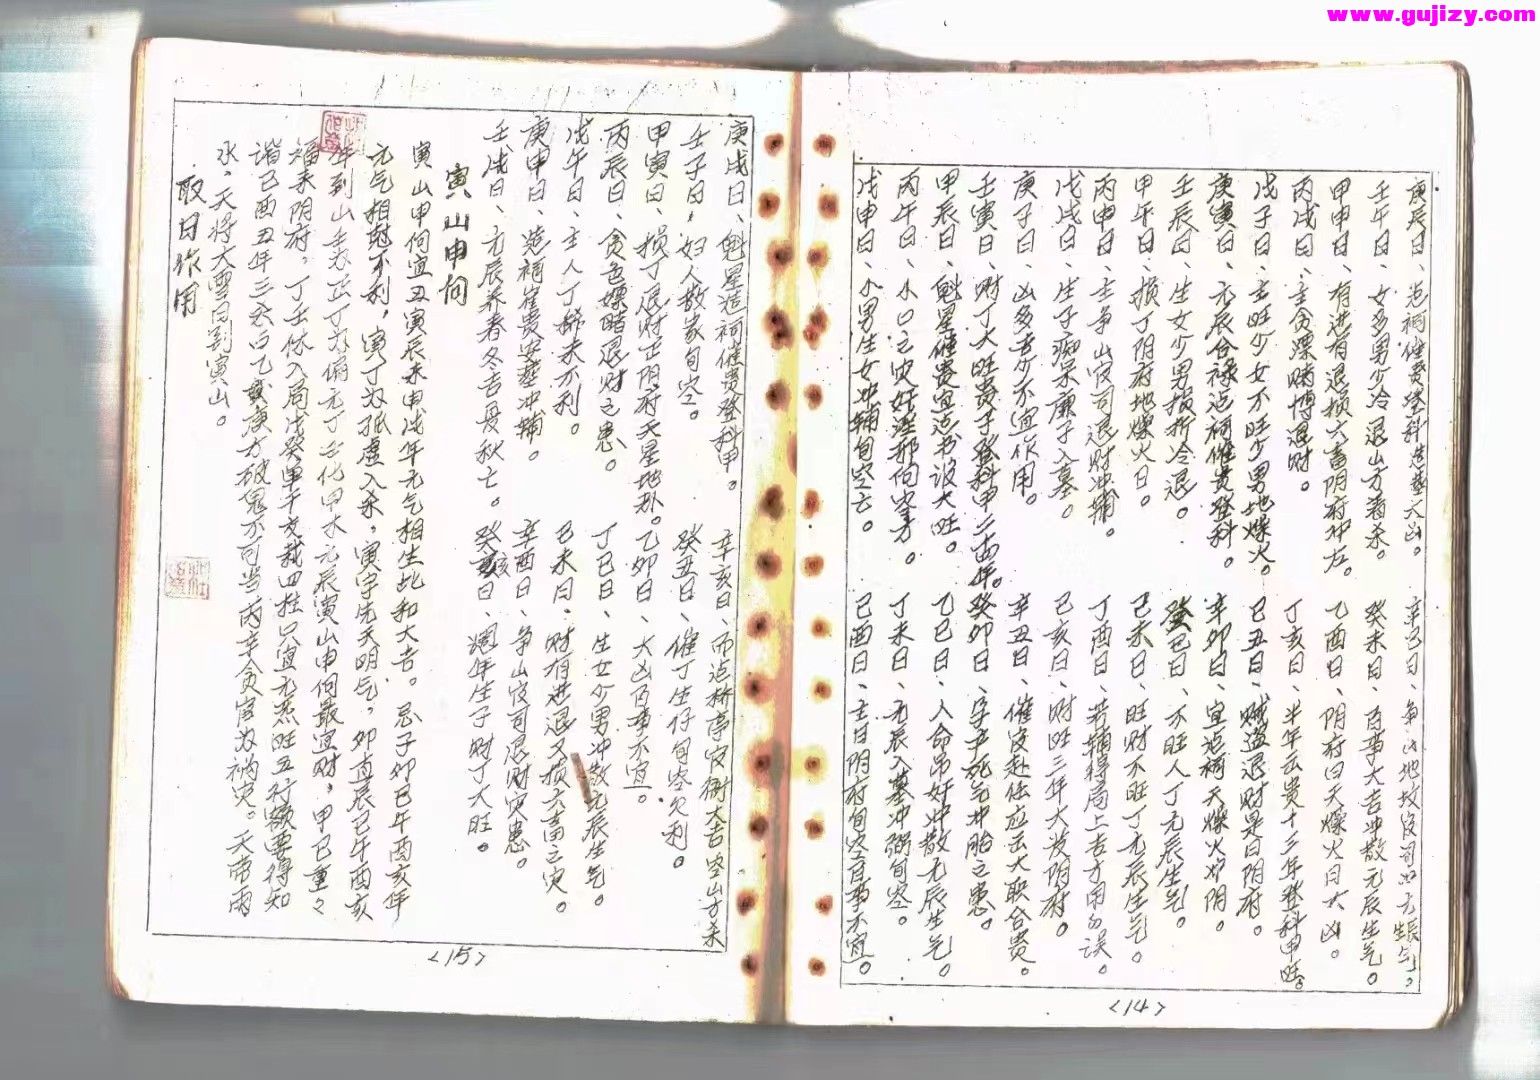 www.gujizy.com
庚辰日、造祠催贵登科造葬大凶。
辛巳日、争山地坟官司
壬午日、女多男少冷退山方煞杀。
癸未日、百事大吉冲散元辰生气。
甲申日、有进有退损六畜阴府冲左。
乙酉日、阴府曰天燥火日大凶。
丙戌日、主贪漂赌博退财。
丁亥日、半年云贵十三年登科甲旺。
戊子日、主旺少女不旺少男地燥火。
己丑日、贼盗退财是日阴府。
庚寅日、元辰合禄造祠催贵登科。
辛卯日、宜造祠天燥火冲阴。
壬辰日、生女少男损折冷退。
癸巳日、不旺人丁元辰生气。
甲午日、损丁阴府地燥火日。
乙未日、旺财不旺丁元辰生气。
丙申日、主争山官司退财冲辅。
丁酉日、若辅得局上吉方用勿误。
戊戌日、生子痴呆庚子入墓。
己亥日、财旺三年大发阴府。
庚子日、凶多吉少不宜作用。
辛丑日、催官赴任应云大联合贵。
壬寅日、财丁大旺贵子登科甲二四年。
癸卯日、字平死气冲胎之患。
甲辰日、魁星催贵宜造书设大旺。
乙巳日、入命吊奸冲散元辰生气。
丙午日、小口之灾奸淫邪向空亡。
丁未日、元辰入墓冲弼旬空。
戊申日、小男生女冲辅旬空亡。
己酉日、主日阴府旬空百事不宜。
<14>
庚戌日、魁星造祠催贵登科甲。
辛亥日、而造桥亭官衙大吉坐山方杀
壬子日，妇人散家旬空。
癸丑日、催丁生仔旬空欠利。
甲寅日、损丁退财正阴府天星地卦。
乙卯日、大凶百事不宜。
丙辰日、贪色嫖赌退财之患。
丁巳日、生女少男冲散元辰生气。
戊午日、主人丁稀未不利。
己未日、财有进退又损六畜之灾。
庚申日、造祠催贵安墓冲辅。
辛酉日、争山官司退财灾患。
壬戌日、元辰养春冬吉夏秋亡。
癸亥日、週年生子财丁大旺。
寅山申向
寅山申向宜丑寅辰未申戌年元气相生比和大吉。忌子卯巳午酉亥年
元气相克不利，寅丁双抵虚入杀，寅字先天明气，卯直辰巳午酉亥
年到山 正丁 偏元丁壬化甲木元辰寅山申向最宜财，甲己重々
福来阴府。丁壬休入局戊癸单干支裁四柱只宜元杰旺五行额要得知
诸己酉丑年三杀曰乙戒庚方破鬼不可当丙辛贪官为祸灾。天帝雨
水，天将大雪日到寅山。
取日作用
<15>